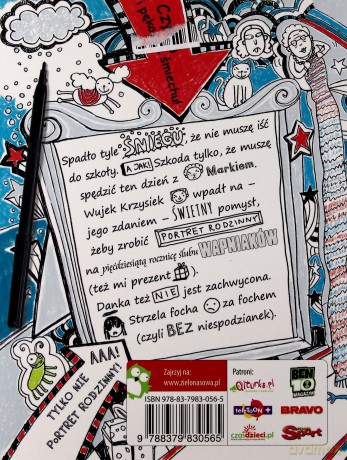 Czy
pęka
śmiechu!
Spadło tyle ŚNIEGU, że nie muszę iść
do szkoły. A JAK! Szkoda tylko, że muszę
spędzić ten dzień z Markiem.
Wujek Krzysiek wpadł na –
jego zdaniem – ŚWIETNY pomysł,
żeby zrobić PORTRET RODZINNY
na pięćdziesiątą rocznicę ślubu WAPNIAKÓW
(też mi prezent).
Danka też NIE jest zachwycona.
Strzela focha za fochem
(czyli BEZ niespodzianek).
AAA!
TYLKO NIE
PORTRET RODZINNY!
Zajrzyj na:
www.zielonasowa.pl
ISBN 978-83-7983-056-5
9 788379 830565
Patroni:
Qlturka.pl
teleTOON+
czasdzieci.pl
BEN 10
MAGAZYN
BRAVO
Sport